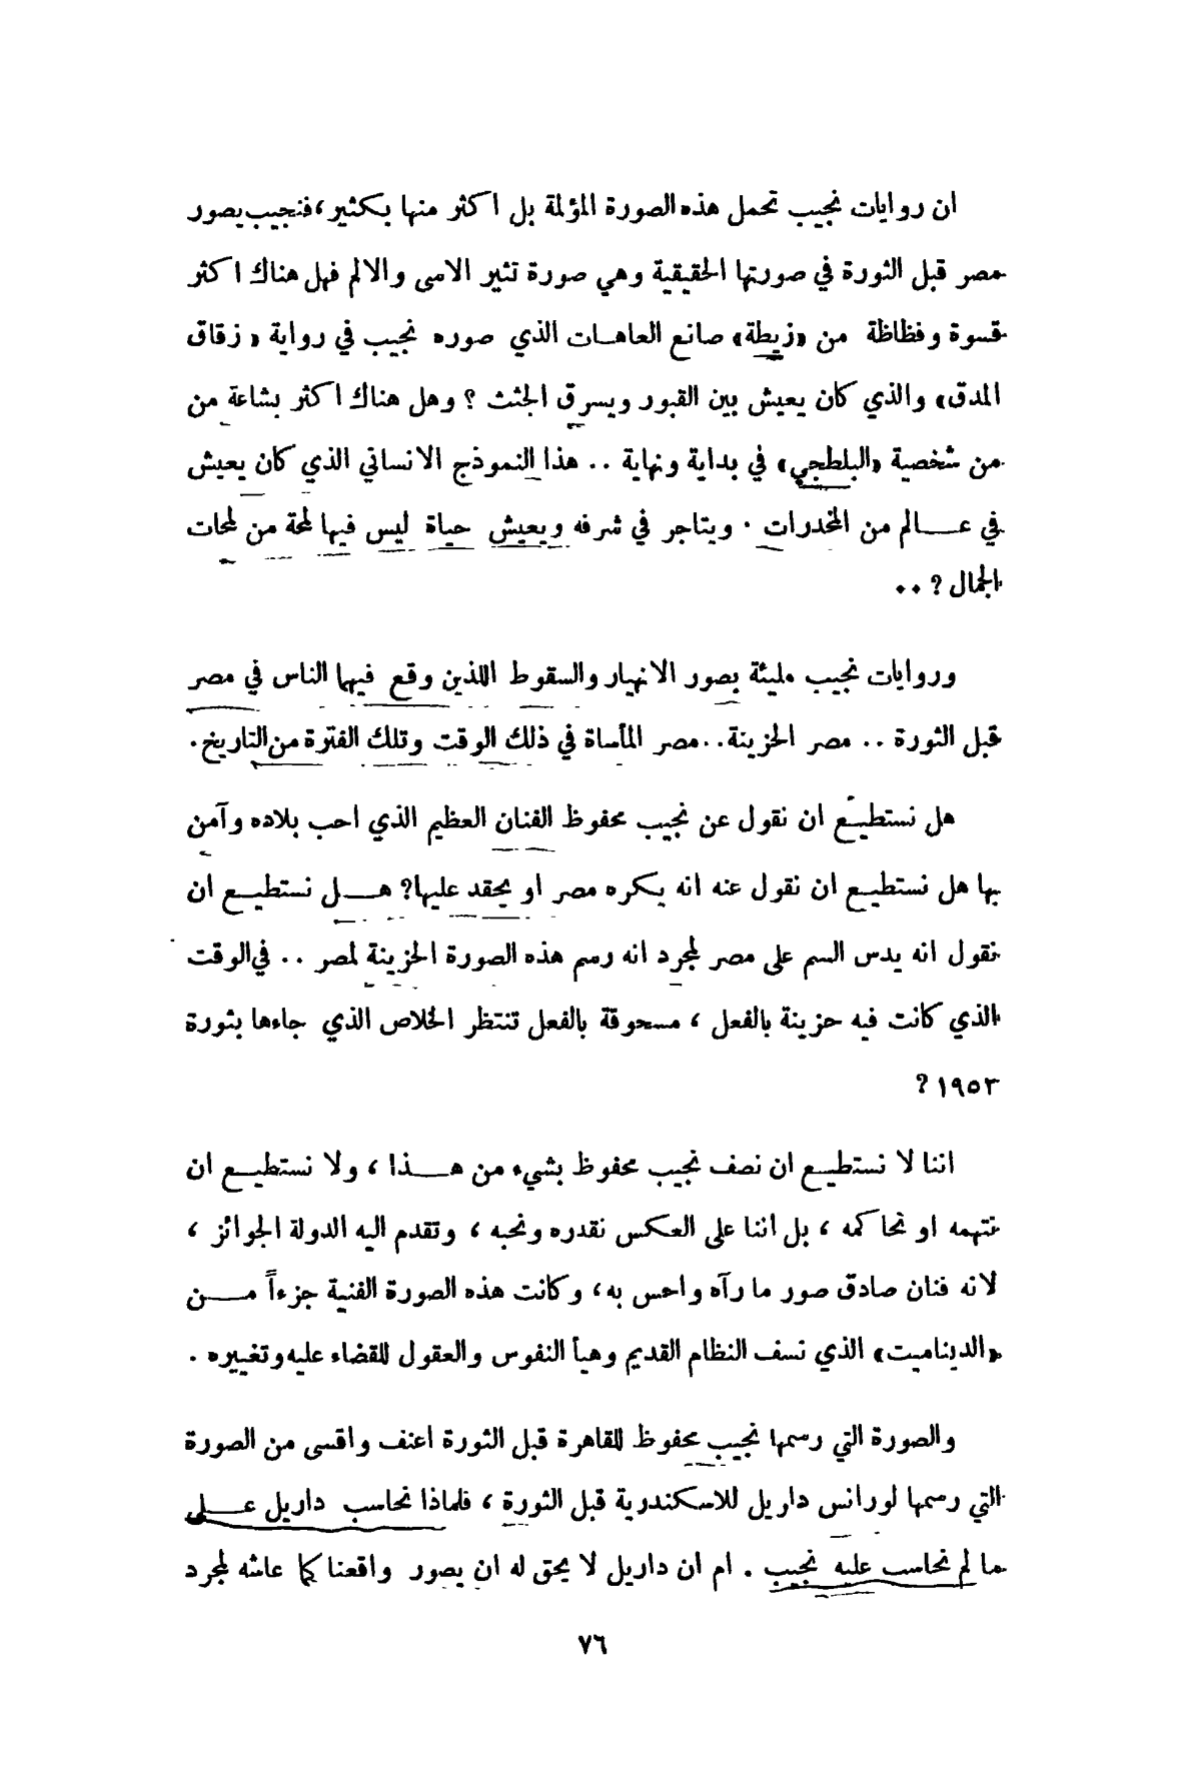 ان روايات نجيب تحمل هذه الصورة المؤلمة بل اكثر منها بكثير، فنجيب يصور
مصر قبل الثورة في صورتها الحقيقية وهي صورة تثير الاسى والالم فهل هناك اكثر
قسوة وفظاظة من «زيطة» صانع العاهات الذي صوره نجيب في رواية « زقاق
المدق» والذي كان يعيش بين القبور ويسرق الجثث ؟ وهل هناك اكثر بشاعة من
من شخصية «البلطجي» في بداية ونهاية .. هذا النموذج الانساني الذي كان يعيش
في عالم من المخدرات . ويتاجر في شرفه ويعيش حياة ليس فيها لمحة من لمحات
الجمال ؟ ..
وروايات نجيب مليئة بصور الانهيار والسقوط اللذين وقع فيهما الناس في مصر
قبل الثورة .. مصر الحزينة.. مصر المأساة في ذلك الوقت وتلك الفترة من التاريخ.
هل نستطيع ان نقول عن نجيب محفوظ الفنان العظيم الذي احب بلاده وآمن
بها هل نستطيع ان نقول عنه انه يكره مصر او يحقد عليها؟ هل نستطيع ان
نقول انه يدس السم على مصر لمجرد انه رسم هذه الصورة الحزينة لمصر .. في الوقت
الذي كانت فيه حزينة بالفعل ، مسحوقة بالفعل تنتظر الخلاص الذي جاءها بثورة
١٩٥٣ ؟
اننا لا نستطيع ان نصف نجيب محفوظ بشيء من هذا ، ولا نستطيع ان
نتهمه او نحاكمه ، بل اننا على العكس نقدره ونحبه ، وتقدم اليه الدولة الجوائز ،
لانه فنان صادق صور ما رآه واحس به، وكانت هذه الصورة الفنية جزءاً من
«الديناميت» الذي نسف النظام القديم وهيأ النفوس والعقول للقضاء عليه وتغييره .
والصورة التي رسمها نجيب محفوظ للقاهرة قبل الثورة اعنف واقسى من الصورة
التي رسمها لورانس داريل للاسكندرية قبل الثورة ، فلماذا نحاسب داريل على
ما لم نحاسب عليه نجيب . ام ان داريل لا يحق له ان يصور واقعنا كما عاشه لمجرد
٧٦